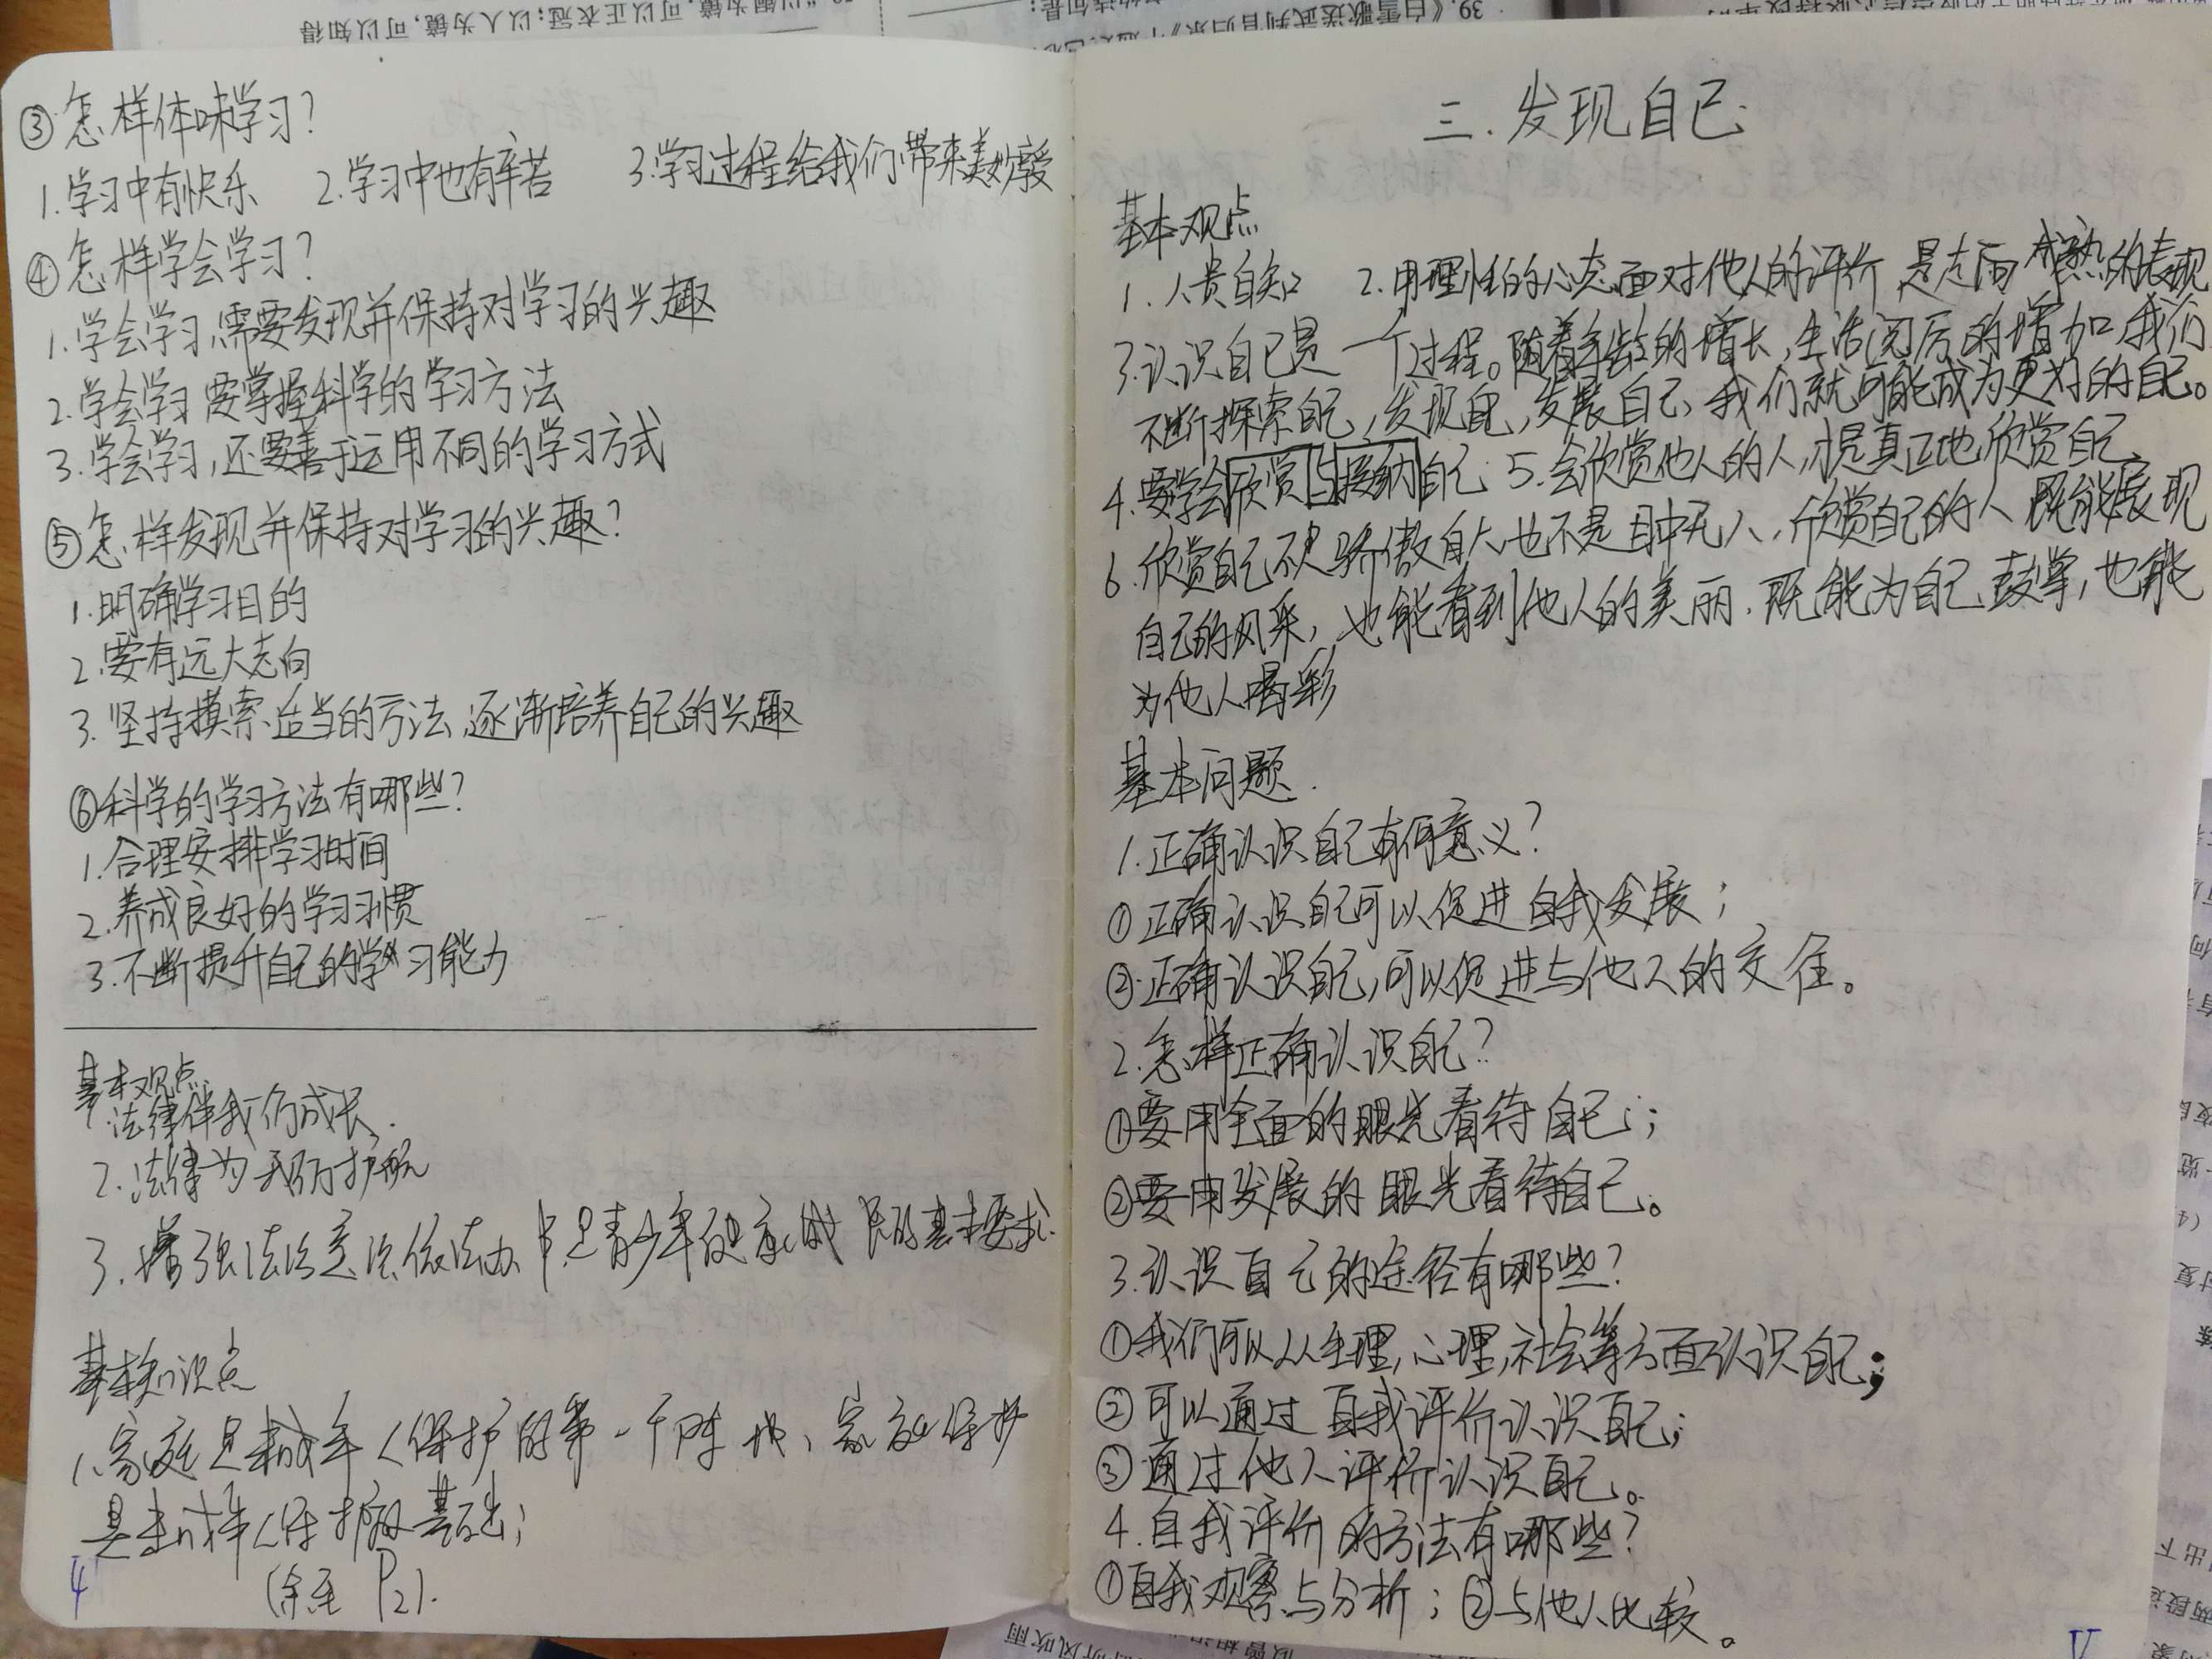 ③怎样体味学习?
1.学习中有快乐 2.学习中也有辛苦 3.学习过程给我们带来美妙享受
④怎样学会学习?
1.学会学习,需要发现并保持对学习的兴趣
2.学会学习 要掌握科学的学习方法
3.学会学习,还要善于运用不同的学习方式
⑤怎样发现并保持对学习的兴趣?
1.明确学习目的
2.要有远大志向
3.坚持摸索适当的方法,逐渐培养自己的兴趣
⑥科学的学习方法有哪些?
1.合理安排学习时间
2.养成良好的学习习惯
3.不断提升自己的学习能力
基本观点
法律伴我们成长.
2.法律为我们护航
3.增强法治意识,依法办事是青少年健康成长的基本要求.
基本知识点
1.家庭是未成年人保护的第一个阵地、家庭保护
是未成年人保护的基础;
(余至 P2).
4
三.发现自己
基本观点
1.人贵自知 2.用理性的心态面对他人的评价 是走向成熟的表现
3.认识自己是一个过程。随着年龄的增长,生活阅历的增加,我们
不断探索自己,发现自己,发展自己,我们就可能成为更好的自己。
4.要学会欣赏与接纳自己 5.会欣赏他人的人,才是真正地欣赏自己
6.欣赏自己不是骄傲自大也不是目中无人,欣赏自己的人 既能展现
自己的风采,也能看到他人的美丽.既能为自己鼓掌,也能
为他人喝彩
基本问题.
1.正确认识自己有何意义?
①正确认识自己可以促进自我发展;
②正确认识自己,可以促进与他人的交往。
2.怎样正确认识自己?
①要用全面的眼光看待自己;
②要用发展的眼光看待自己。
3.认识自己的途径有哪些?
①我们可以从生理,心理,社会等方面认识自己;
②可以通过自我评价认识自己;
③通过他人评价认识自己。
4.自我评价的方法有哪些?
①自我观察与分析;②与他人比较。
V
39.《白雪歌送武判官归京》中
以铜为镜,可以正衣冠;以人为镜,可以知得